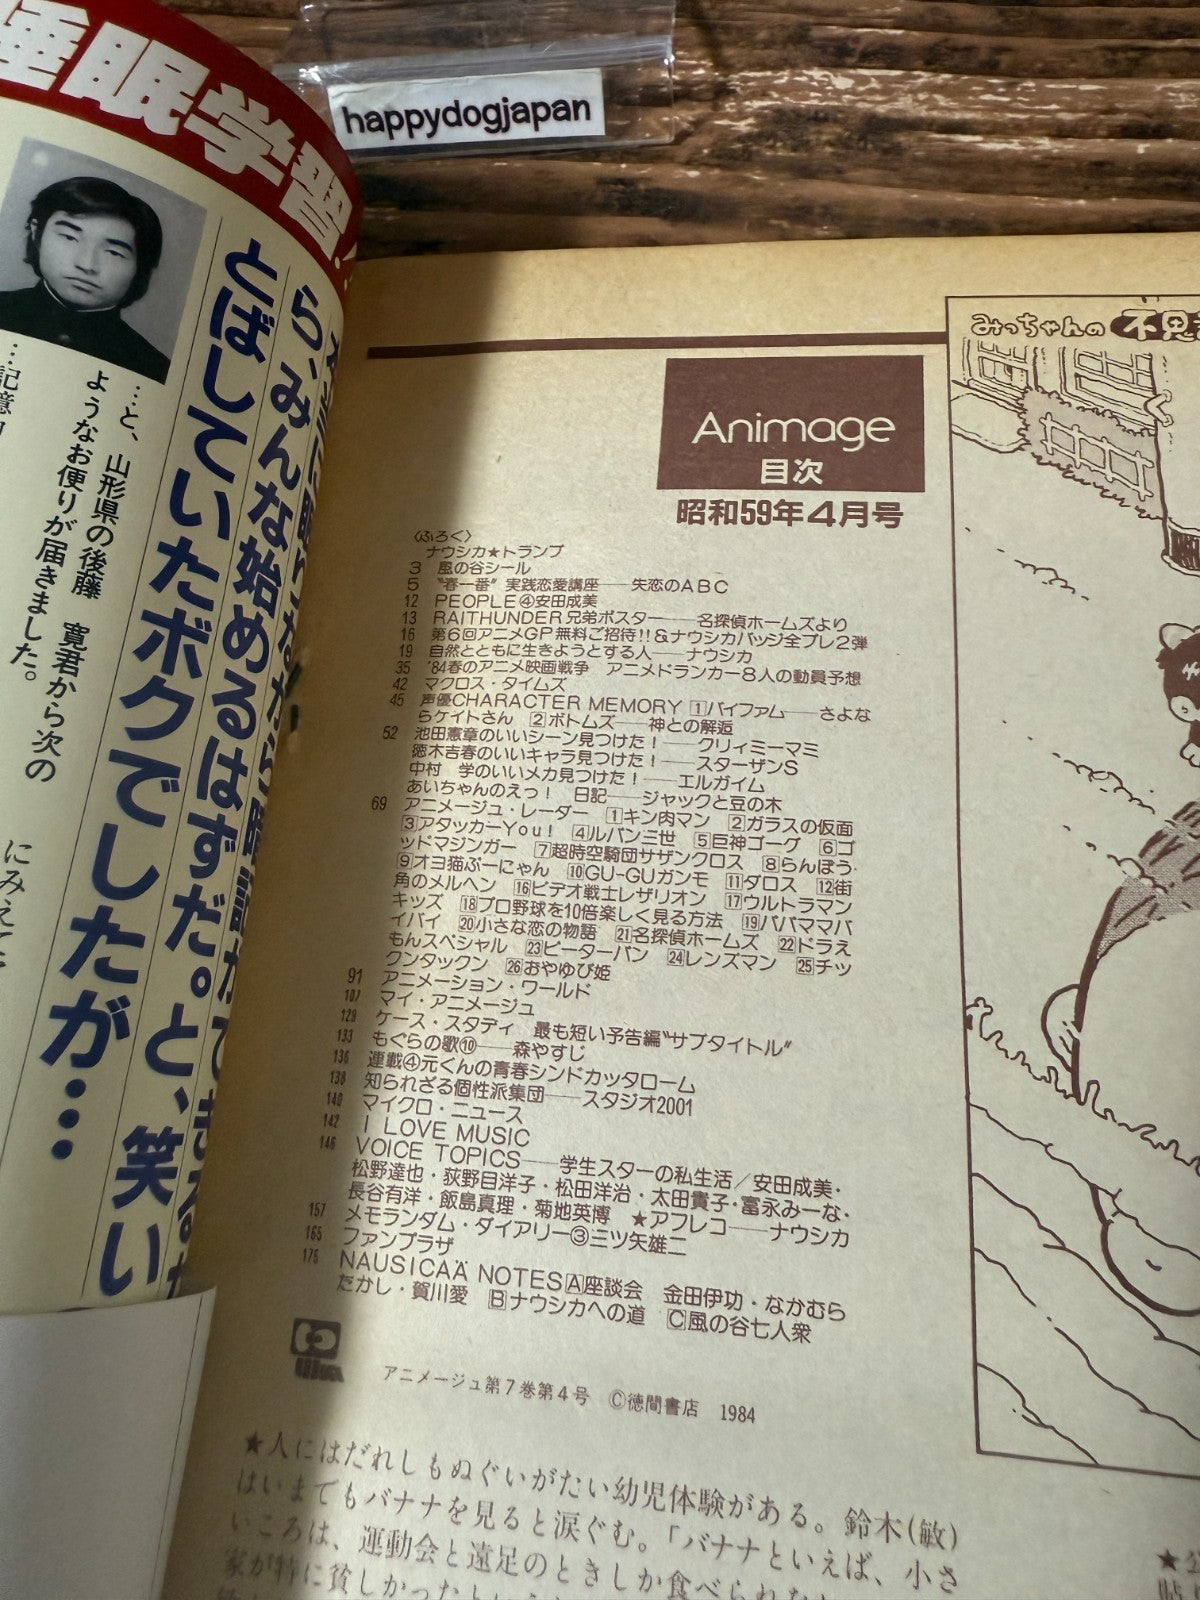 happydogjapan
睡眠学習
ら、みんな始めるはずだ。と、笑い
とばしていたボクでしたが…
…と、山形県の後藤 寛君から次の
ようなお便りが届きました。
みっちゃんの
Animage
目次
昭和59年4月号
〈ふろく〉
ナウシカ★トランプ
3 風の谷シール
5 “春一番”実践恋愛講座──失恋のABC
12 PEOPLE④安田成美
13 RAITHUNDER兄弟ポスター──名探偵ホームズより
16 第6回アニメGP無料ご招待!!&ナウシカバッジ全プレ2弾
19 自然とともに生きようとする人──ナウシカ
35 '84春のアニメ映画戦争 アニメドランカー8人の動員予想
42 マクロス・タイムズ
45 声優CHARACTER MEMORY 1バイファム──さよな
らケイトさん 2ボトムズ──神との邂逅
52 池田憲章のいいシーン見つけた!──クリィミーマミ
徳木吉春のいいキャラ見つけた!──スターザンS
中村 学のいいメカ見つけた!──エルガイム
あいちゃんのえっ! 日記──ジャックと豆の木
69 アニメージュ・レーダー 1キン肉マン 2ガラスの仮面
3アタッカーYou! 4ルパン三世 5巨神ゴーグ 6ゴ
ッドマジンガー 7超時空騎団サザンクロス 8らんぽう
9オヨ猫ぶーにゃん 10GU-GUガンモ 11ダロス 12街
角のメルヘン 16ビデオ戦士レザリオン 17ウルトラマン
キッズ 18プロ野球を10倍楽しく見る方法 19パパママバ
イバイ 20小さな恋の物語 21名探偵ホームズ 22ドラえ
もんスペシャル 23ピーターパン 24レンズマン 25チッ
クンタックン 26おやゆび姫
91 アニメーション・ワールド
107 マイ・アニメージュ
129 ケース・スタディ 最も短い予告編“サブタイトル”
133 もぐらの歌⑩──森やすじ
136 連載④元くんの青春シンドカッタローム
138 知られざる個性派集団──スタジオ2001
140 マイクロ・ニュース
142 I LOVE MUSIC
146 VOICE TOPICS──学生スターの私生活/安田成美・
松野達也・荻野目洋子・松田洋治・太田貴子・富永みーな・
長谷有洋・飯島真理・菊地英博 ★アフレコ──ナウシカ
157 メモランダム・ダイアリー③三ツ矢雄二
165 ファンプラザ
175 NAUSICAÄ NOTES A座談会 金田伊功・なかむら
たかし・賀川愛 Bナウシカへの道 C風の谷七人衆
アニメージュ第7巻第4号 ©徳間書店 1984
★人にはだれしもぬぐいがたい幼児体験がある。鈴木(敏)
はいまでもバナナを見ると涙ぐむ。「バナナといえば、小さ
いころは、運動会と遠足のときしか食べられな
家が特に貧しかったと